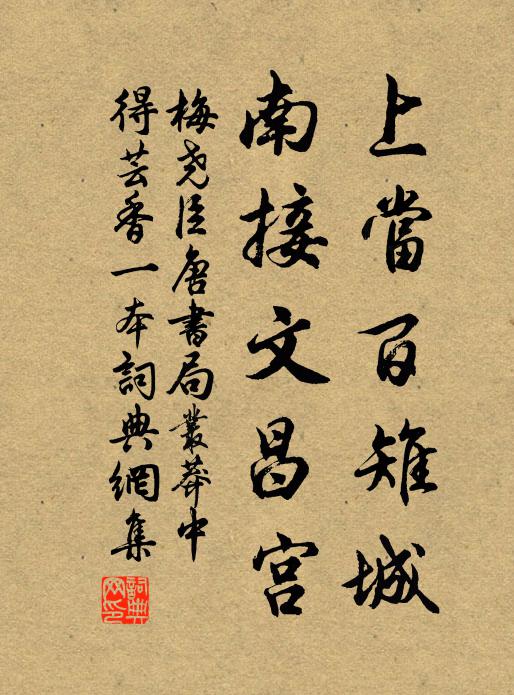 上當百雉城
南接文昌宮
梅堯臣唐書局叢莽中
得芸香一本詞典網集
詞典
网印